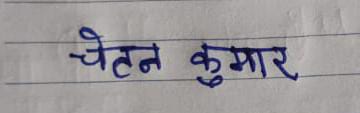 चेतन कुमार